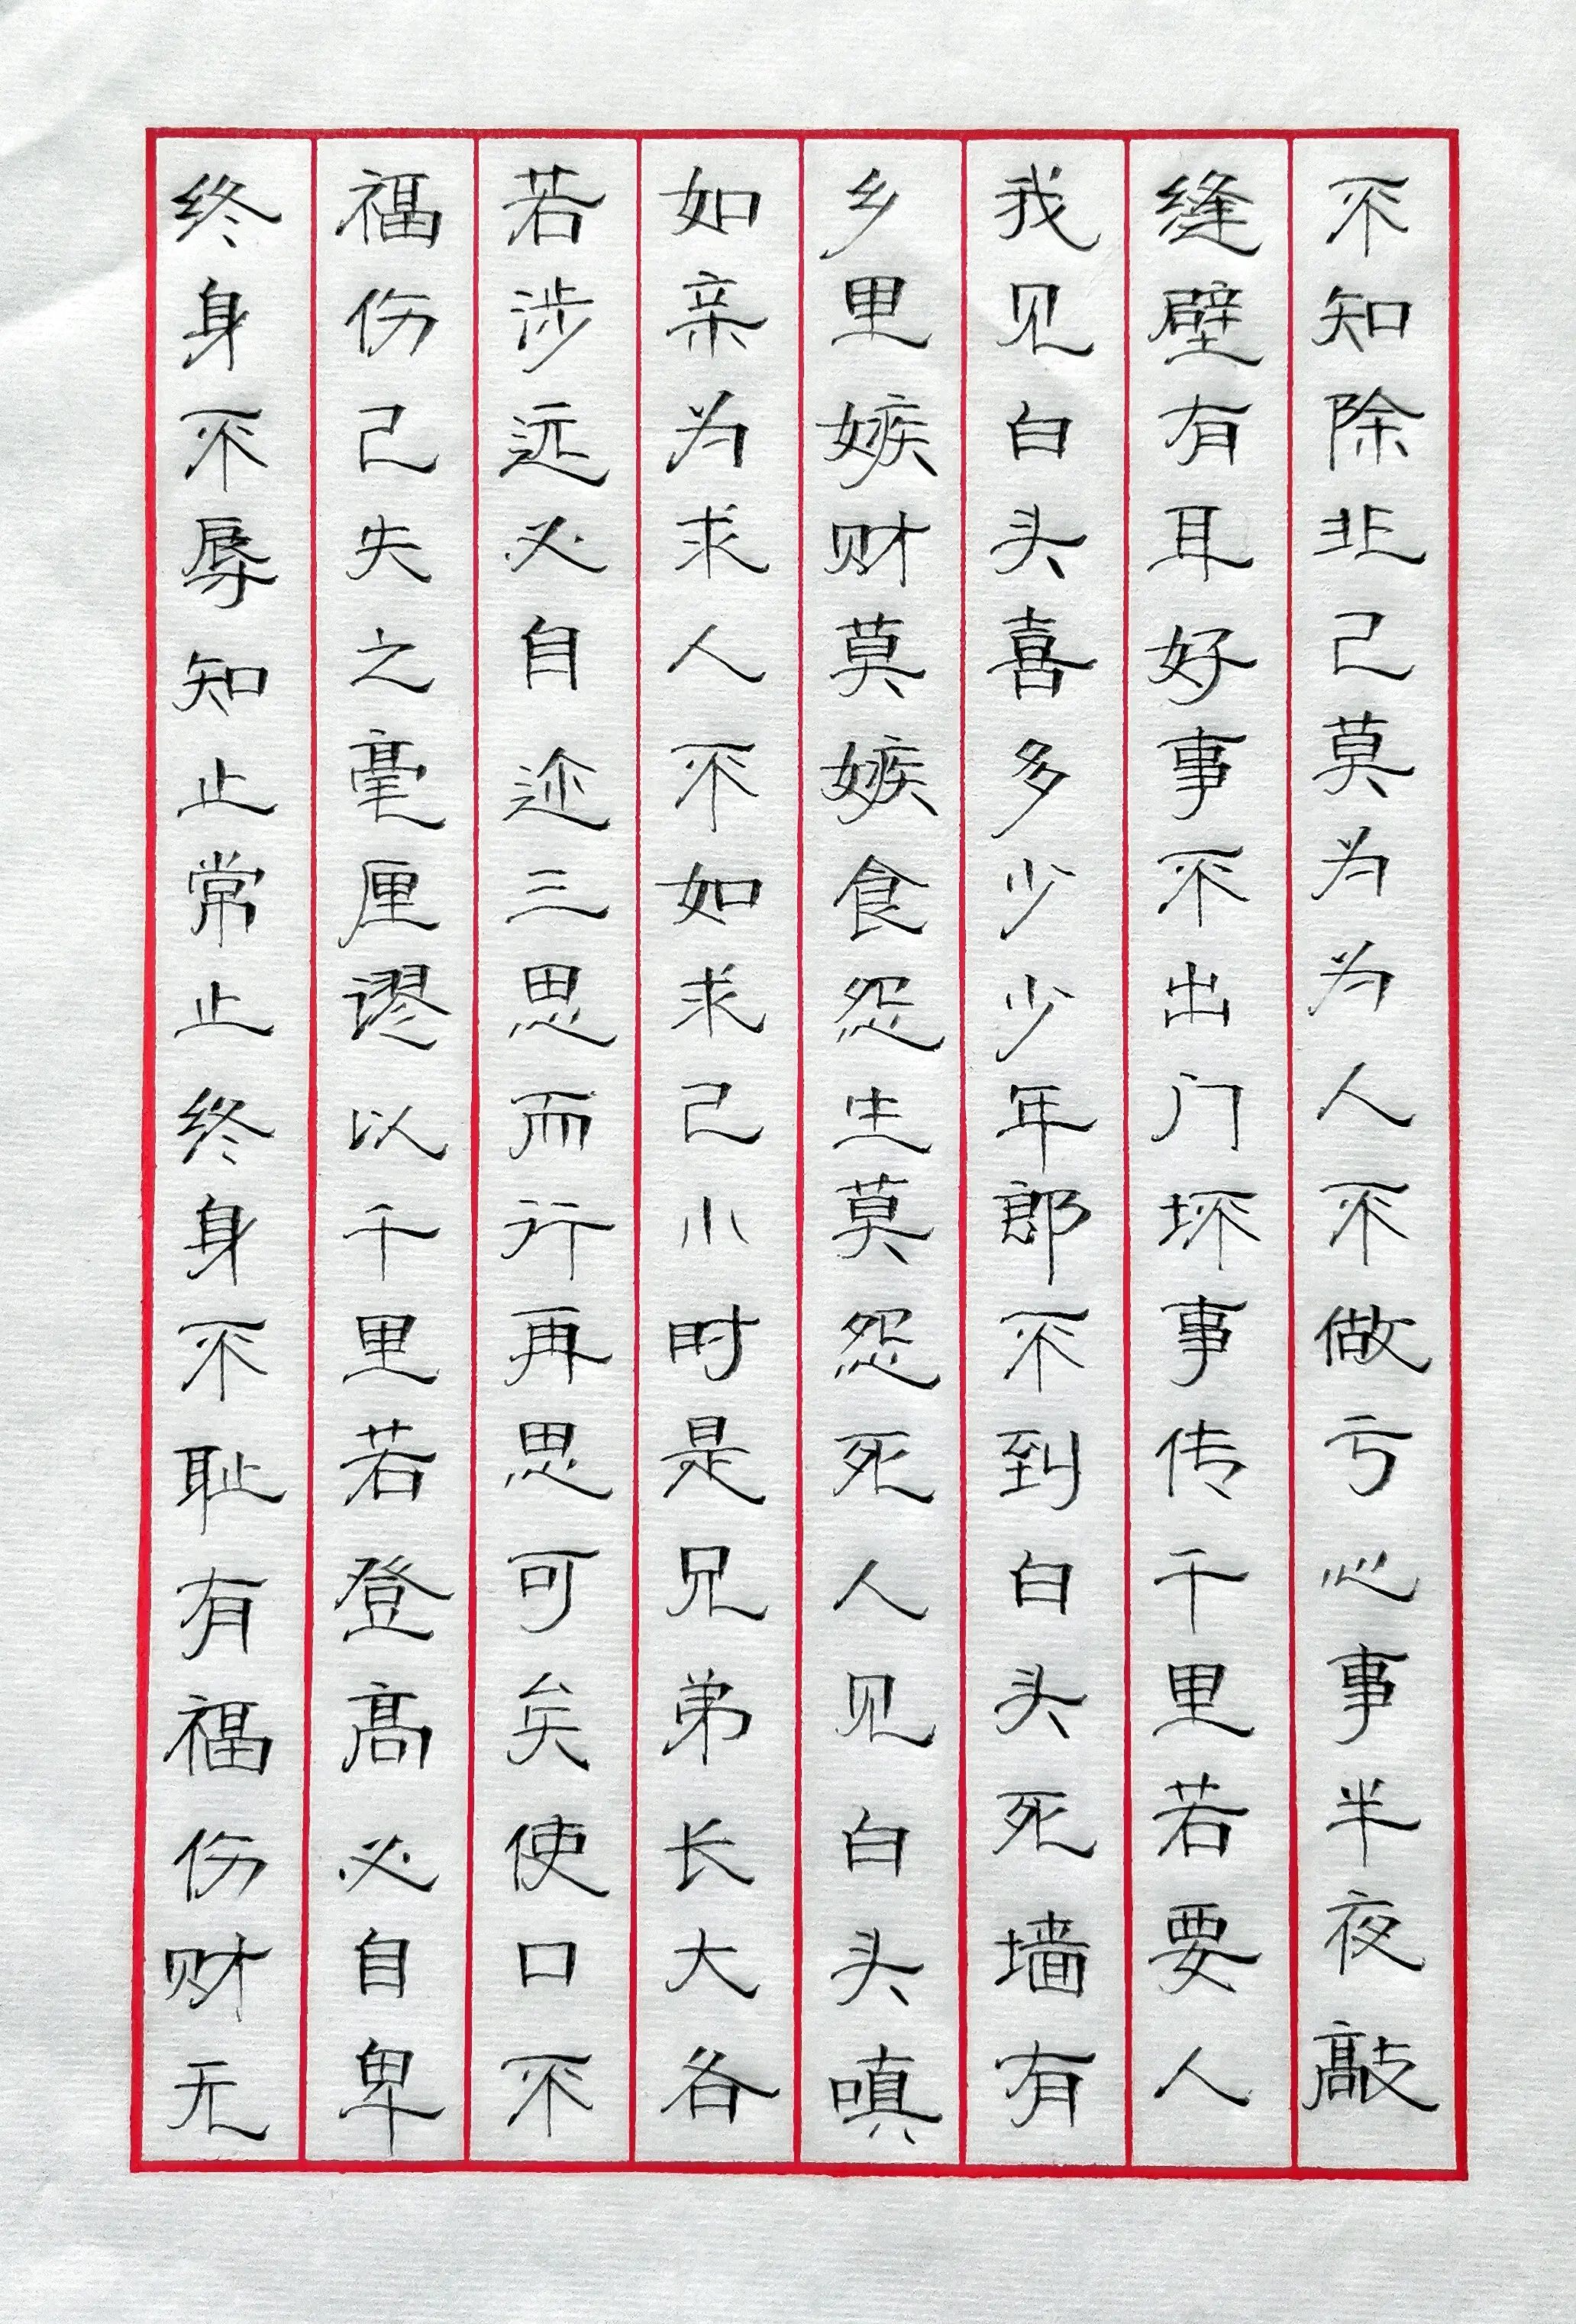 不知除非己莫为为人不做亏心事半夜敲
缝壁有耳好事不出门坏事传千里若要人
我见白头喜多少少年郎不到白头死墙有
乡里嫉财莫嫉食怨生莫怨死人见白头嗔
如亲为求人不如求己小时是兄弟长大各
若涉远必自迩三思而行再思可矣使口不
福伤己失之毫厘谬以千里若登高必自卑
终身不辱知止常止终身不耻有福伤财无